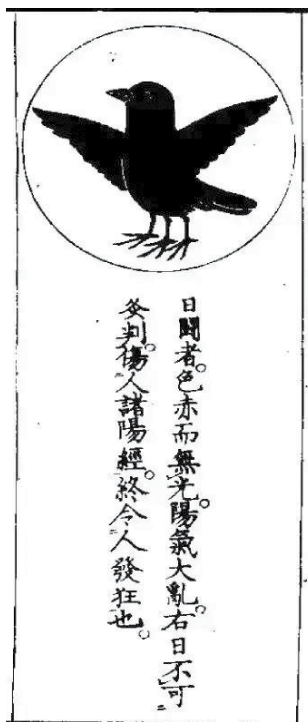 日鬭者。色赤而無光。陽氣大亂。右日不可
灸判。傷人諸陽經。終令人發狂也。